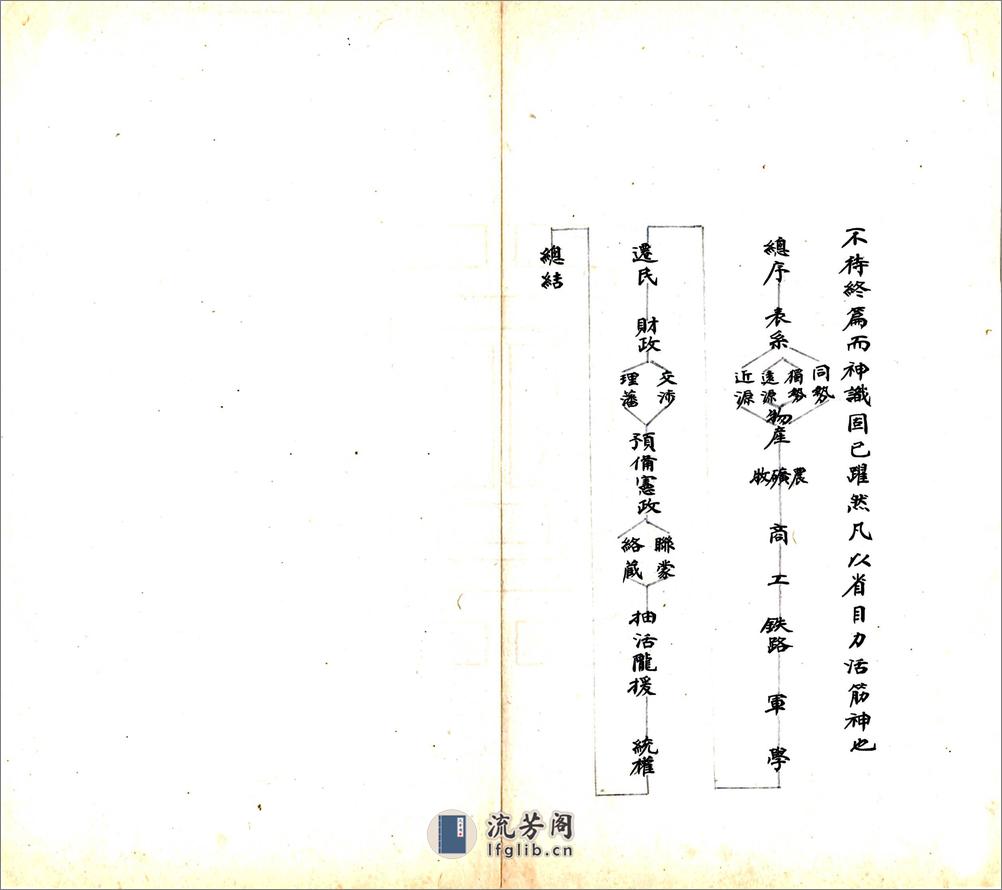 不待終篇而神識固已躍然凡以省目力活筋神也
總序
表系
同勢
獨勢
遠源
近源
物產
農礦牧
商
工
鉄路
軍
學
遷民
財政
交涉
理藩
預備憲政
聯蒙
絡藏
抽活隴援
統權
總結
流芳阁
lfglib.cn